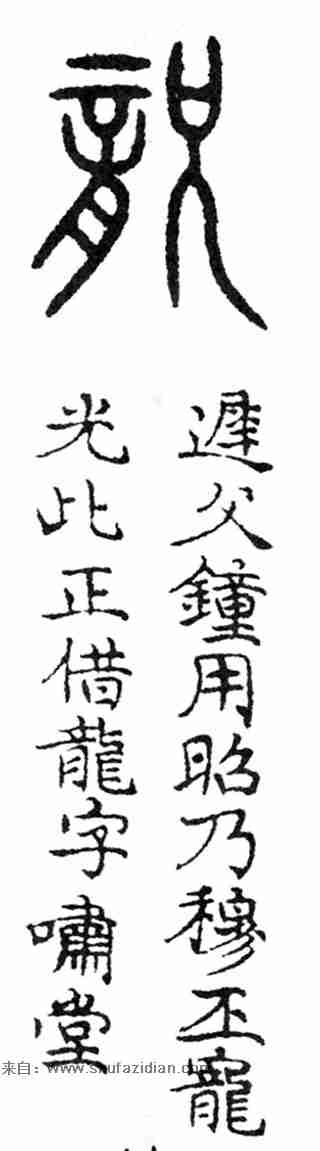 龍
遲父鐘用昭乃穆丕寵
光此正借龍字嘯堂
来自：www.shufazidian.com